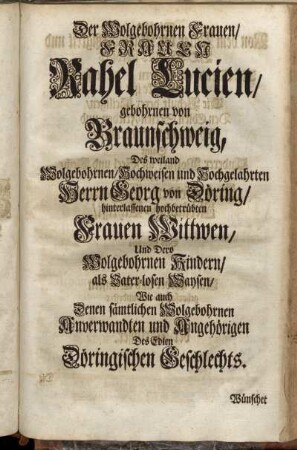 Der Wolgebohrnen Frauen/
FRAUEN
Rahel Lucien/
gebohrnen von
Braunschweig,
Des weiland
Wolgebohrnen/Hochweisen und Hochgelahrten
Herrn Georg von Döring/
hinterlassenen hochbetrübten
Frauen Wittwen/
Und Dero
Wolgebohrnen Kindern/
als Vater-losen Waysen/
Wie auch
Denen sämtlichen Wolgebohrnen
Anverwandten und Angehörigen
Des Edlen
Döringischen Geschlechts.
Wünschet